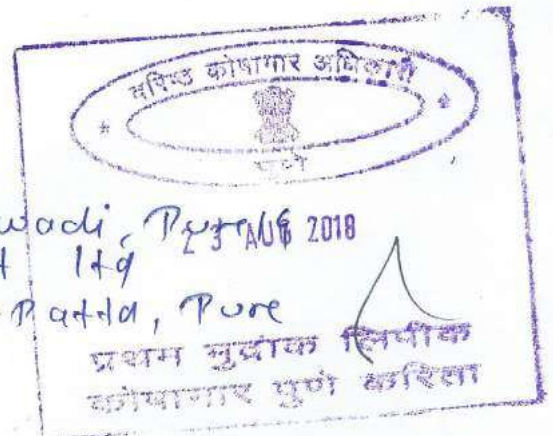 वरिष्ठ कोषागार अधिकारी
पुणे
wadi, Pune
23 AUG 2018
t ltd
Patta, Pune
प्रथम मुद्रांक लिपीक
कोषागार पुणे करिता